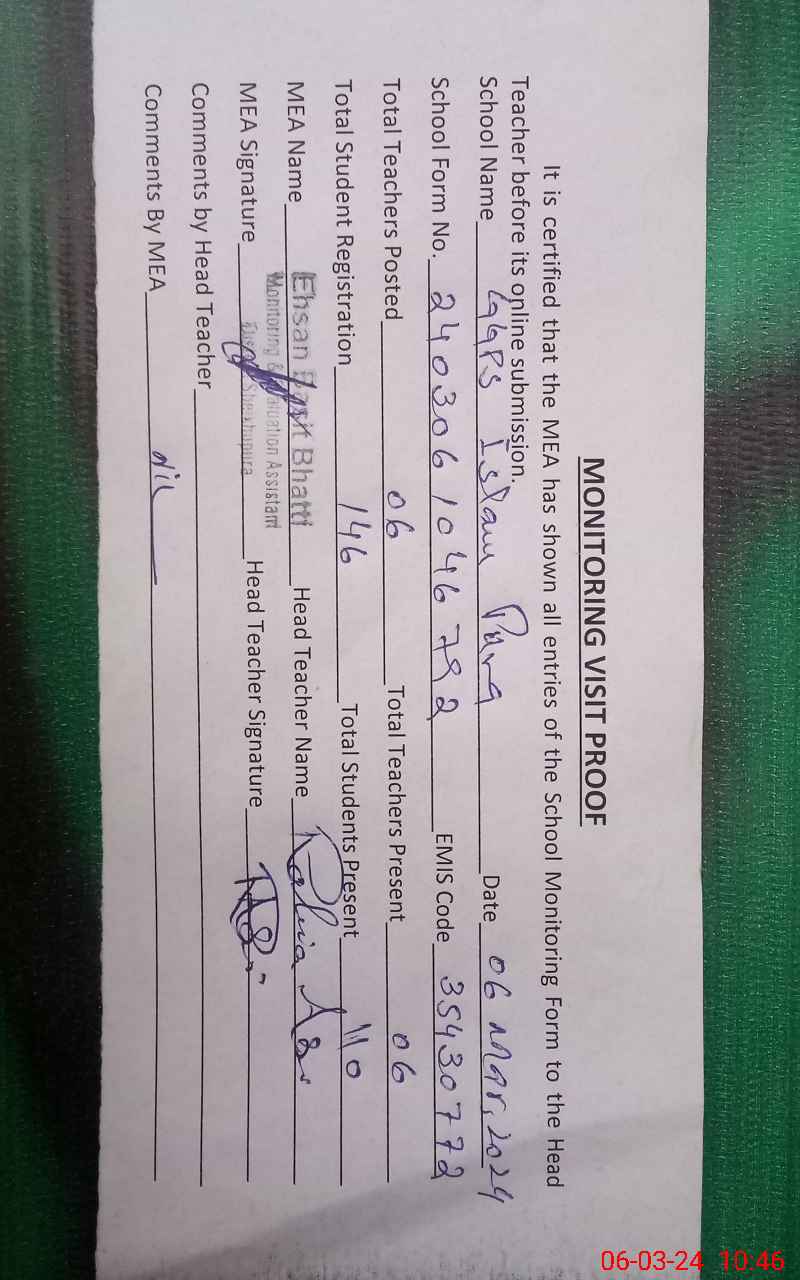 MONITORING VISIT PROOF
It is certified that the MEA has shown all entries of the School Monitoring Form to the Head
Teacher before its online submission.
School Name GGPS Islam Pura Date 06 Mar, 2024
School Form No. 2403061046792 EMIS Code 35430772
Total Teachers Posted 06 Total Teachers Present 06
Total Student Registration 146 Total Students Present 110
MEA Name Ehsan Basit Bhatti Head Teacher Name
Monitoring & Evaluation Assistant
MEA Signature Sheikhupura Head Teacher Signature
Comments by Head Teacher
Comments By MEA Nil
06-03-24 10:46